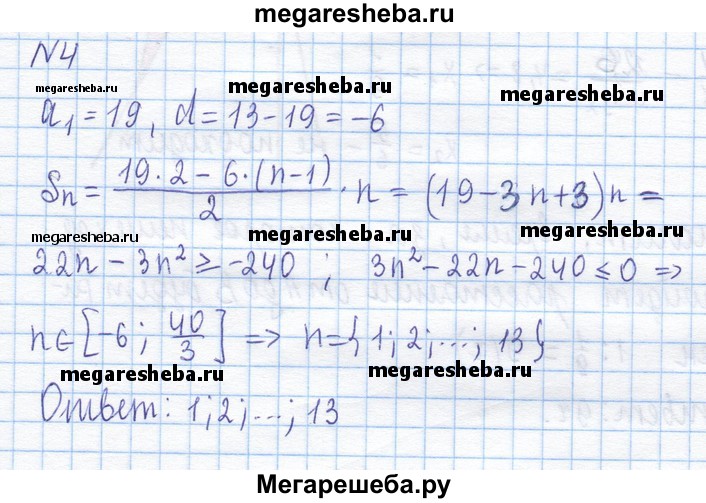 megaresheba.ru
N4
megaresheba.ru megaresheba.ru megaresheba.ru
a₁ = 19, d = 13 - 19 = -6
Sₙ = (19·2 - 6·(n-1))/2 · n = (19 - 3n + 3)n =
megaresheba.ru megaresheba.ru megaresheba.ru
22n - 3n² ≥ -240 ; 3n² - 22n - 240 ≤ 0 ⇒
n ∈ [-6 ; 40/3] ⇒ n = {1; 2; ...; 13}
megaresheba.ru megaresheba.ru
Ответ: 1; 2; ...; 13
Мегарешеба.ру